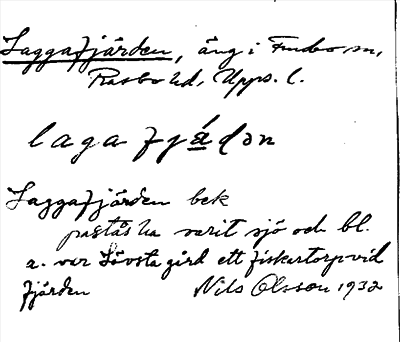 Laggafjärden, äng i Funbo sn,
Rasbo hd, Upps. l.
laga fjádən
Laggafjärden bek
påstås ha varit sjö och bl.
a. var Lövsta gård ett fiskartorp vid
fjärden Nils Olsson 1932